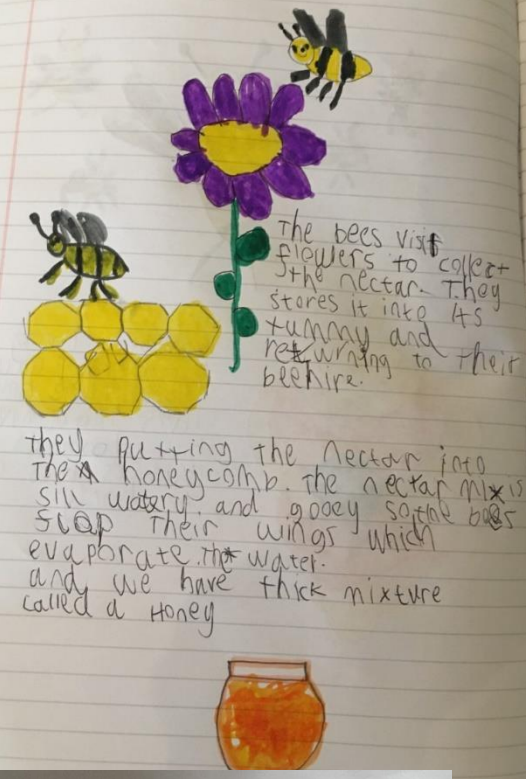 The bees visit
flewers to collect
the nectar. They
stores it into its
tummy and
returning to their
beehire.
They putting the nectar into
The honeycomb. The nectar mix is
sill watery and gooey so the bees
slap their wings which
evaporate. the water.
and we have thick mixture
called a Honey